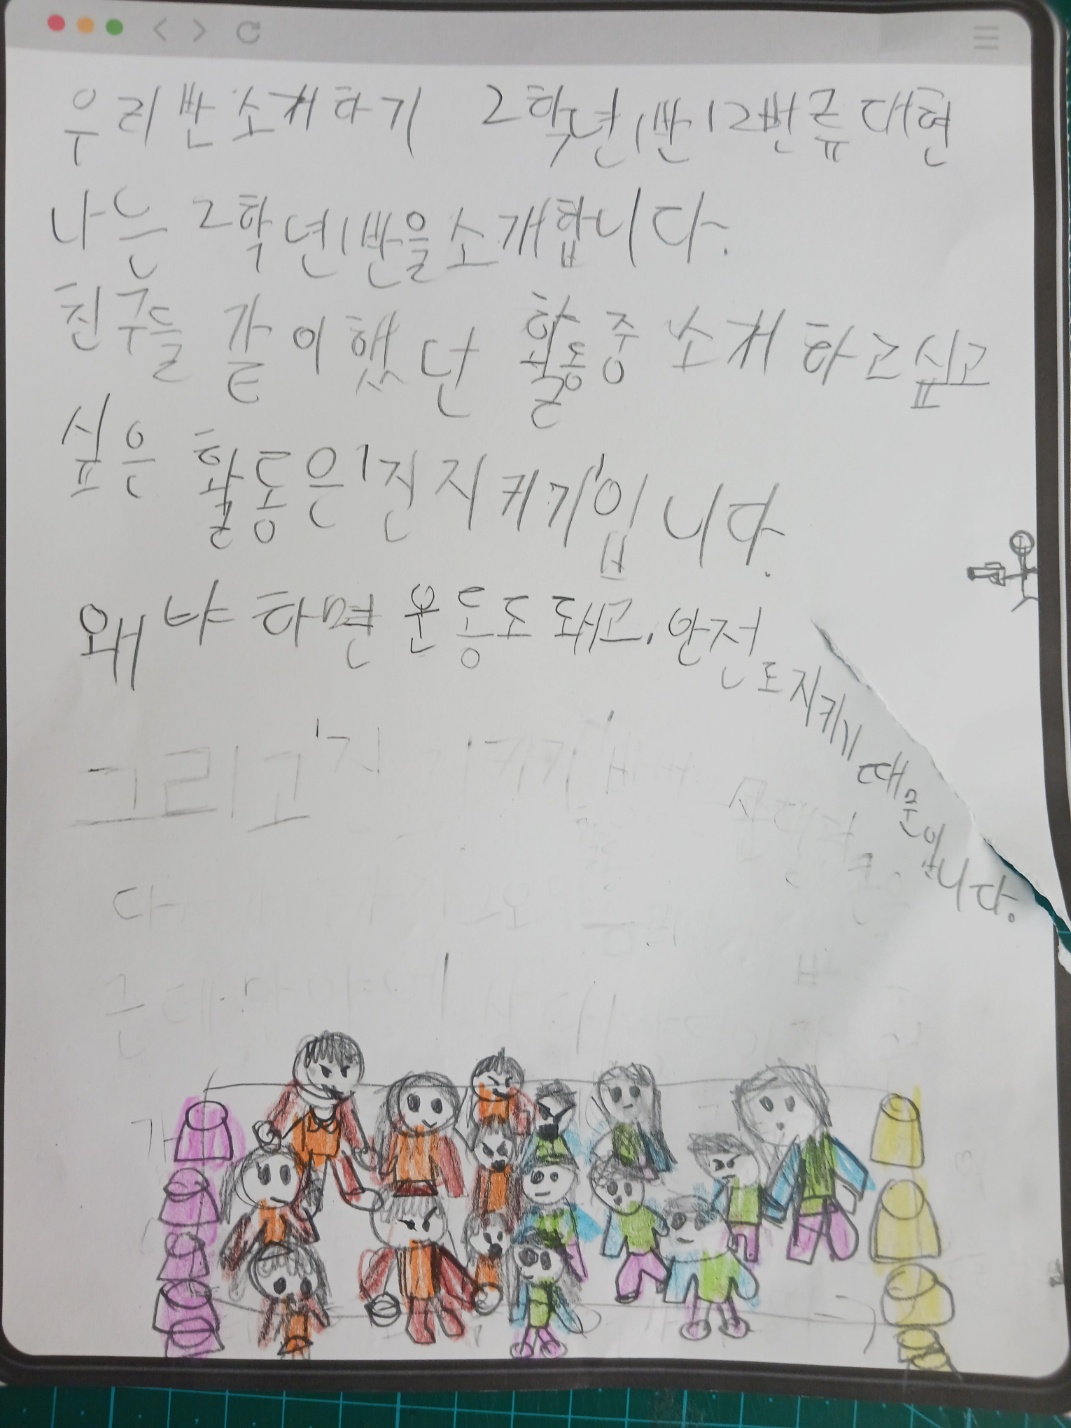 우리반소개하기 2학년1반12번류대현
나는 2학년1반을소개합니다.
친구들 같이했던 활동중 소개 하고싶고
싶은 활동은'진지키기'입니다.
왜냐하면 운동도 돼고, 안전도지키기때문입니다.
그리고'진